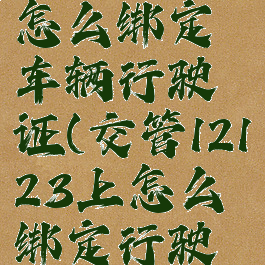 怎么绑定
车辆行驶
证(交管121
23上怎么
绑定行驶